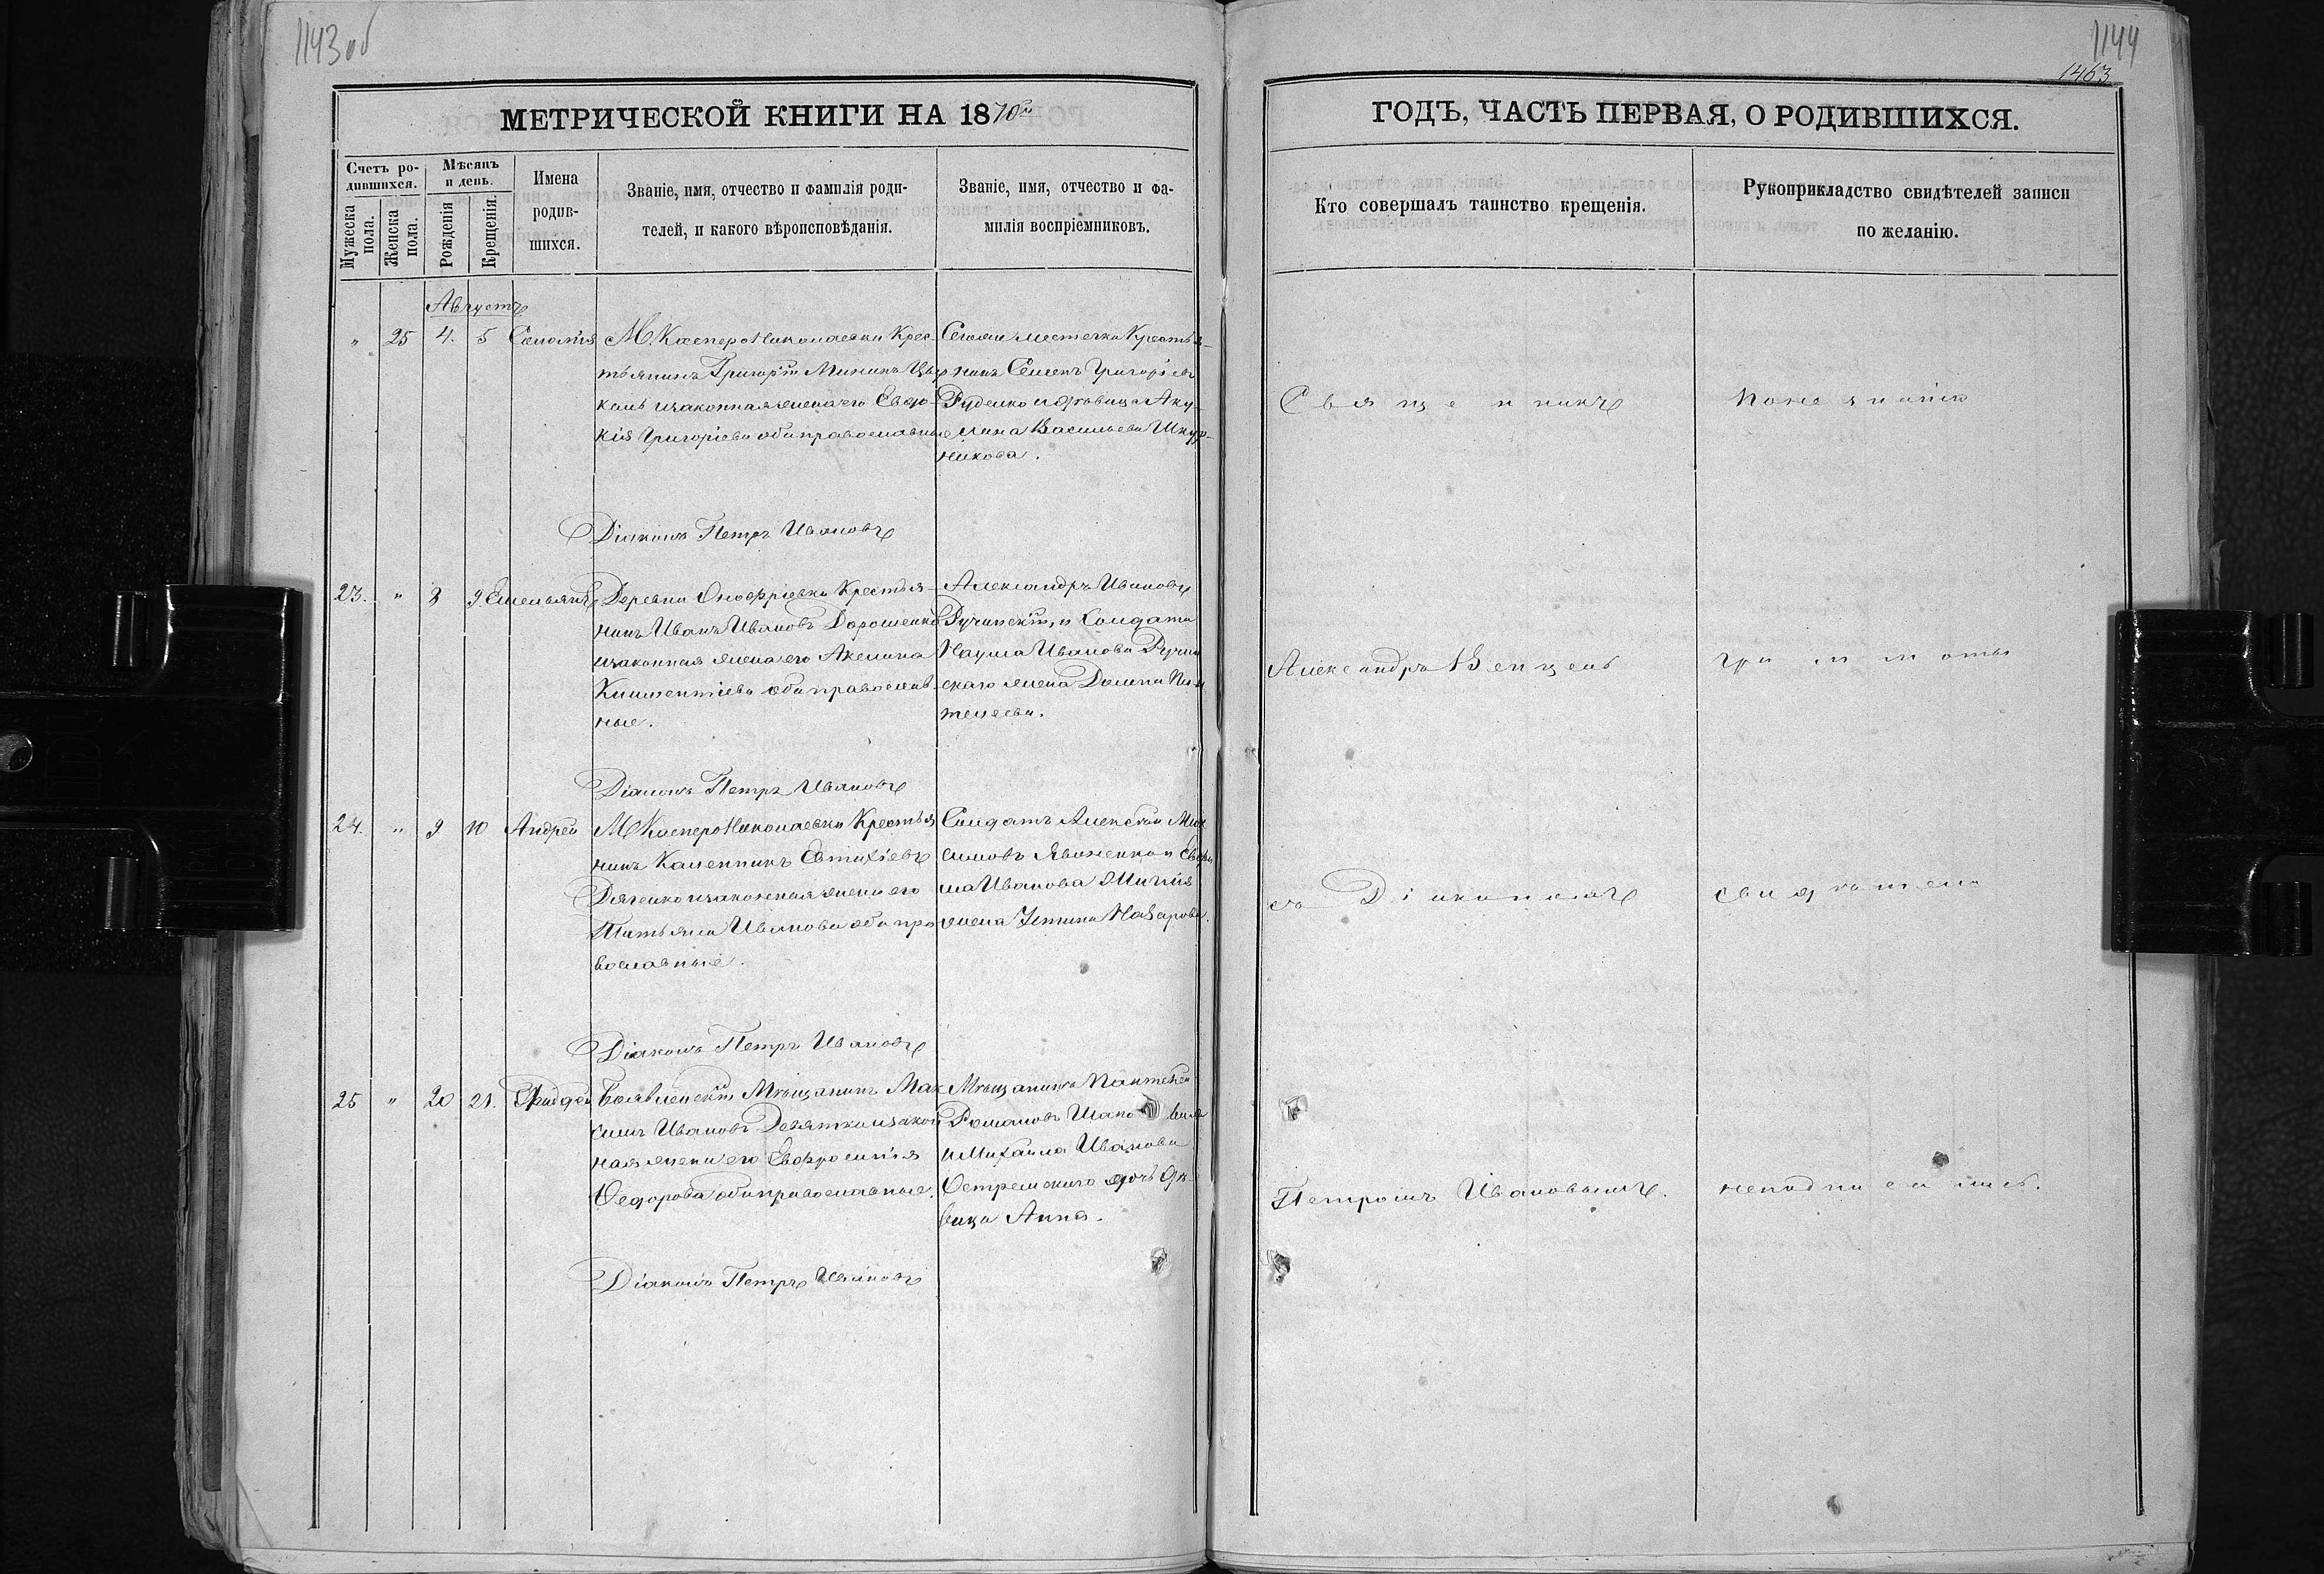 1143 об
1144
1463
МЕТРИЧЕСКОЙ КНИГИ НА 1870й
ГОДЪ, ЧАСТЬ ПЕРВАЯ, О РОДИВШИХСЯ.
Счетъ ро-
дившихся.
Мужеска пола.
Женска пола.
Мѣсяцъ
и день.
Рожденія
Крещенія.
Имена
родив-
шихся.
Званіе, имя, отчество и фамилія роди-
телей, и какого вѣроисповѣданія.
Званіе, имя, отчество и фа-
милія воспріемниковъ.
Кто совершалъ таинство крещенія.
Рукоприкладство свидѣтелей записи
по желанію.
Августъ
" 25 4. 5
М. Касперо Николаевки Крес-
тьянинъ Григорій Мининъ
изаконная жена его Евдо-
кія Григоріева оба православные
местечка Крестья-
нинъ Семенъ Григоріевъ
Руденко и дѣвица Аку-
лина Васильева Шкур-
никова.
Діаконъ Петръ Ивановъ
23. " 8 9 Емельянъ
Деревни Онофріевки Крестья-
нинъ Иванъ Ивановъ Дорошенко
изаконная жена его Акелина
Климентіева оба православ-
ные.
Александръ Ивановъ
Ручинскій, и Солдата
Наума Иванова Ручин
скаго жена Домна Пан
телеева.
Діаконъ Петръ Ивановъ
24. " 9 10 Андрей
М Касперо Николаевки Крестья
нинъ Калинникъ Евтихіевъ
Дяченко изаконная жена его
Татьяна Иванова оба пра
вославные.
Солдатъ Алексѣй Мак
симовъ
Иванова
жена Устина Назарова.
Діаконъ Петръ Ивановъ
25 " 20 21.
Мѣщанинъ Мак
симъ Ивановъ Девятка изакон
ная жена его Евфросинія
Ѳедорова оба православные.
Мѣщанинъ Пантелей
Романовъ
и Михаила Иванова
дочь дѣ-
вица Анна.
Діаконъ Петръ Ивановъ
Священникъ
Александръ Венцель
съ Діакономъ
Петромъ Ивановымъ.
Понезнанію
грамматы
свидѣтели
неподписались.